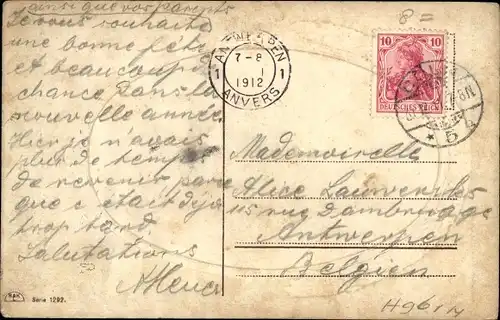 ainsi que vos parents
Je vous souhaite
une bonne fête
et beaucoup
chance dans la
nouvelle année
Hier je n'avais
plus de temps
de revenir parce
que c'était déjà
trop tard.
Salutations
ANTWERPEN
7-8
1 1
1
1912
ANVERS
10 10
DEUTSCHES REICH
Mademoiselle
Alice Lauwereiks
115 rue Dambrugge
Antwerpen
Belgien
Serie 1292.
8=